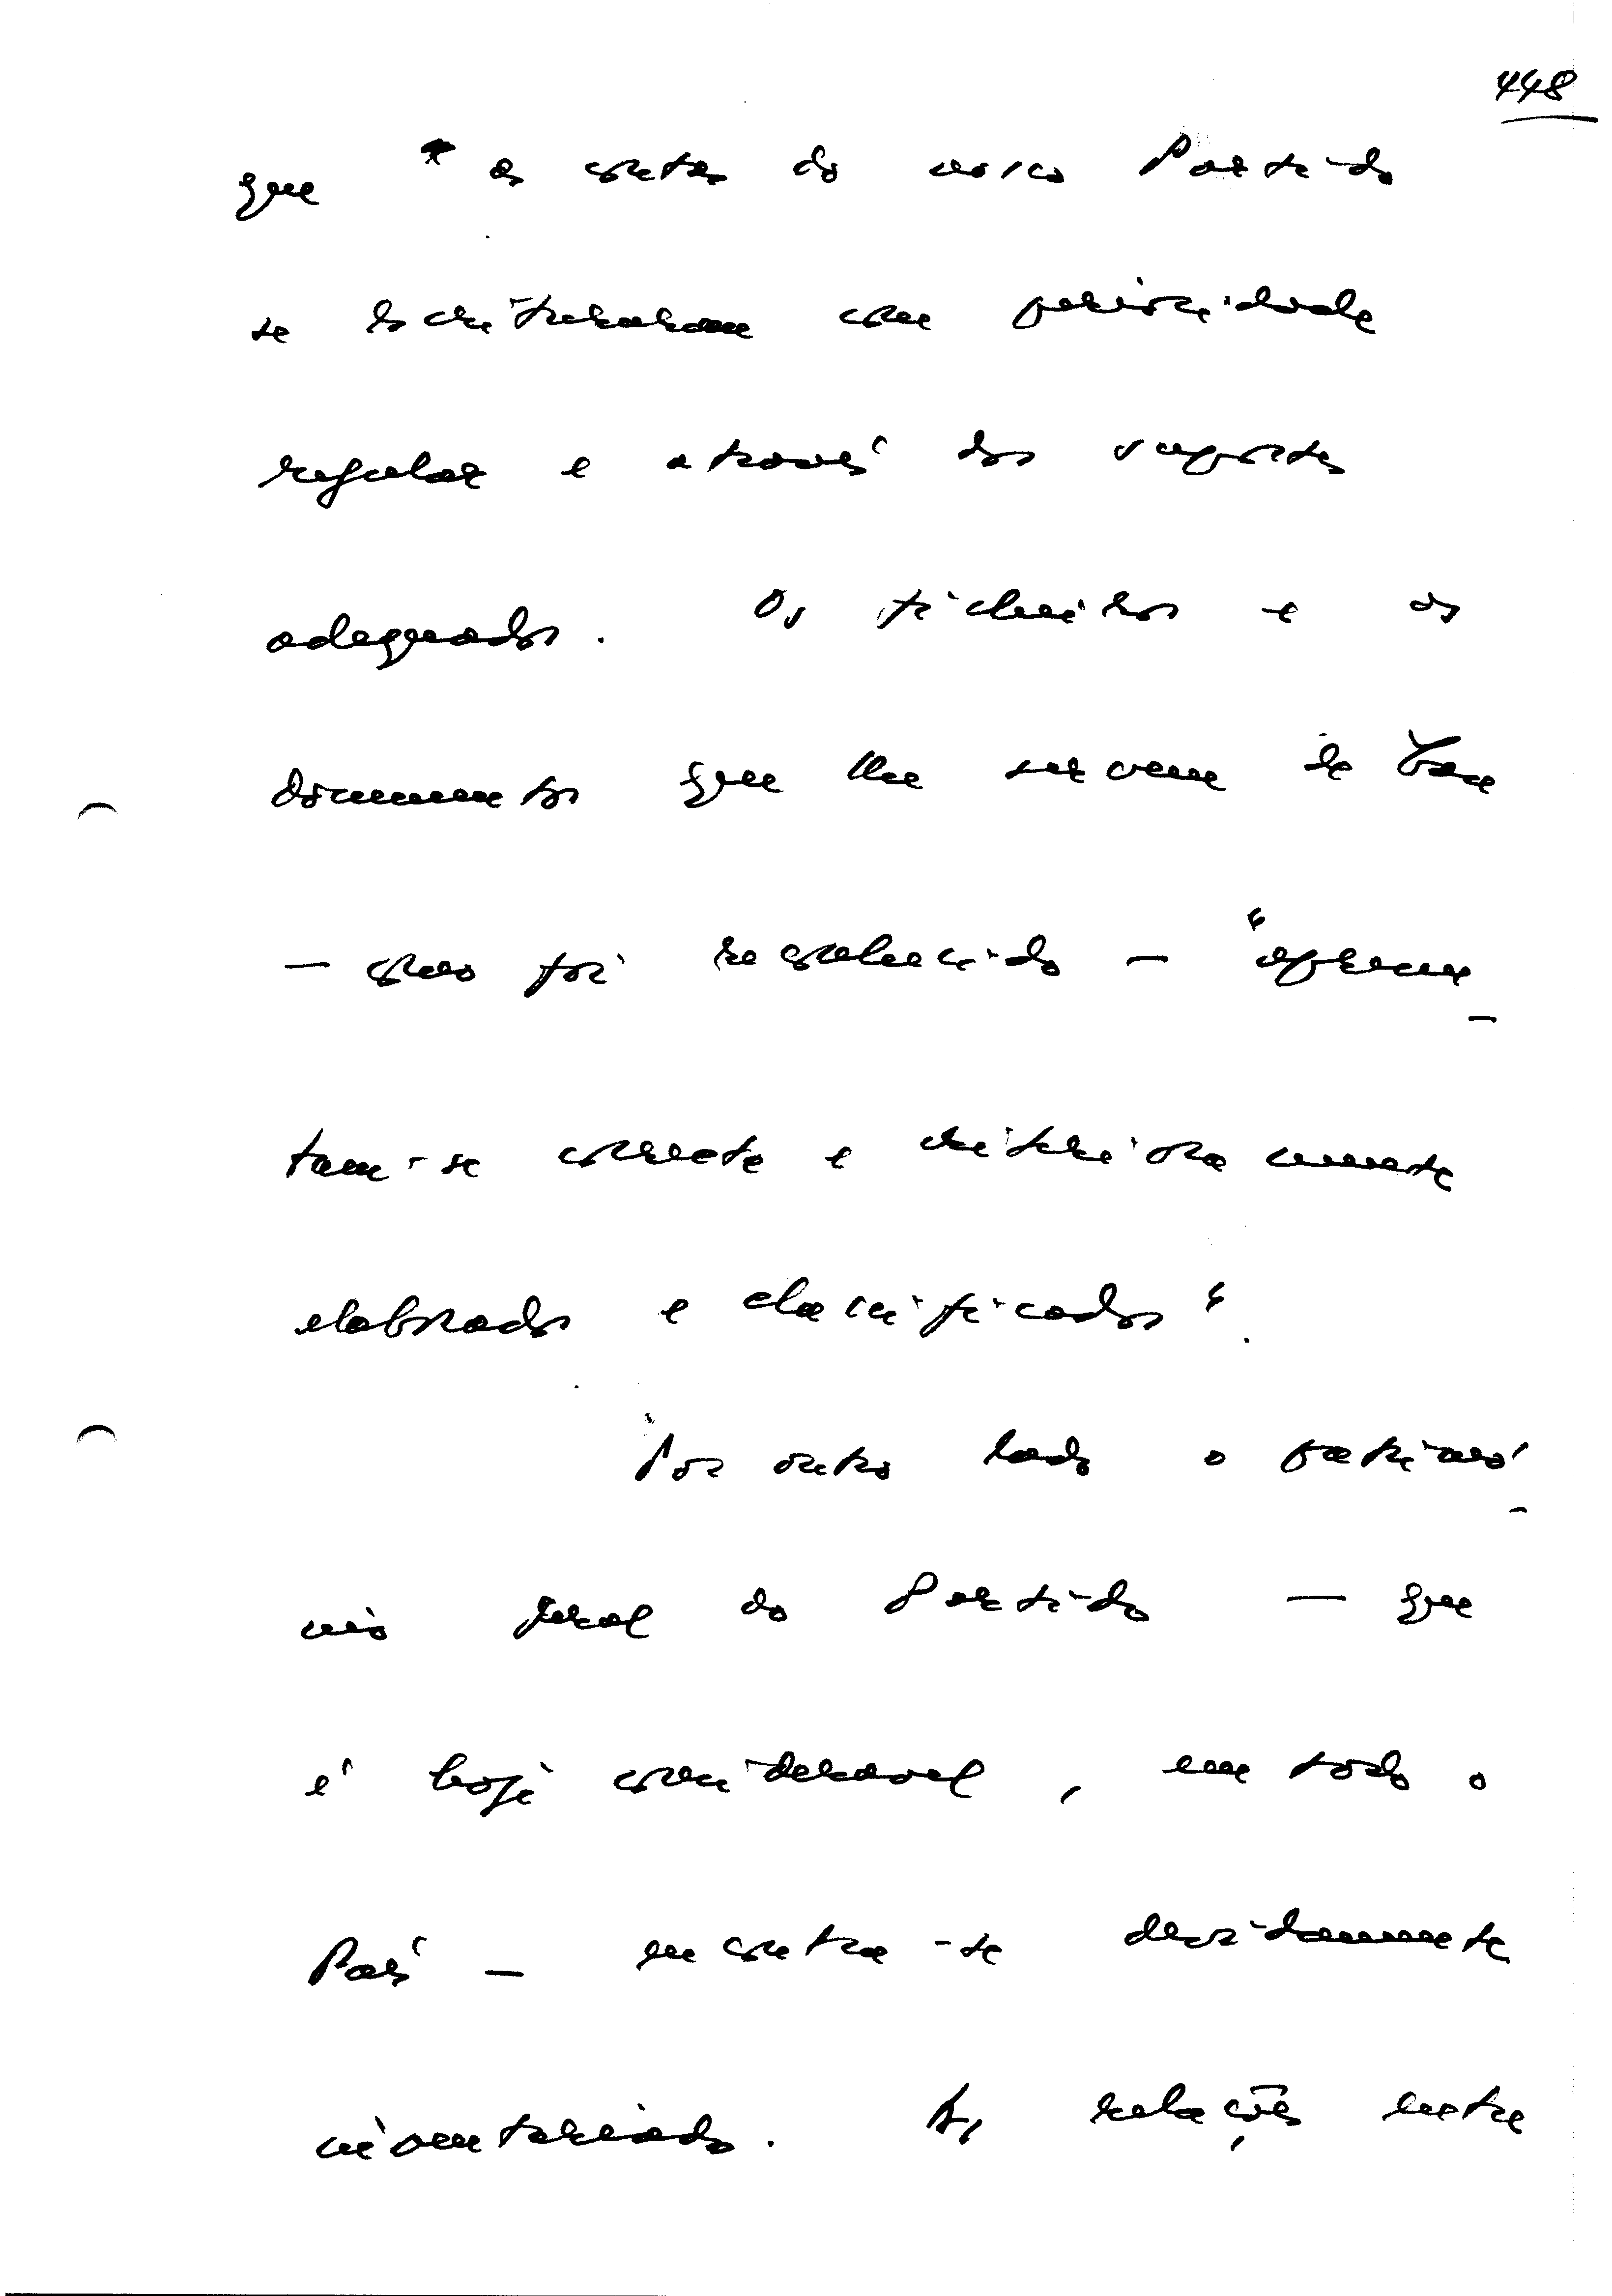 448
que as contas do nosso Partido
se encontravam com periodicidade
regular e através dos suportes
adequados. Os ficheiros e os
documentos que lhe servem de base
— como foi reconhecido — "apresen-
tam-se correcta e criteriosamente
elaborados e classificados".
Por outro lado o patrimó-
nio geral do Partido — que
é hoje considerável, em todo o
País — encontra-se devidamente
inventariado. As relações entre